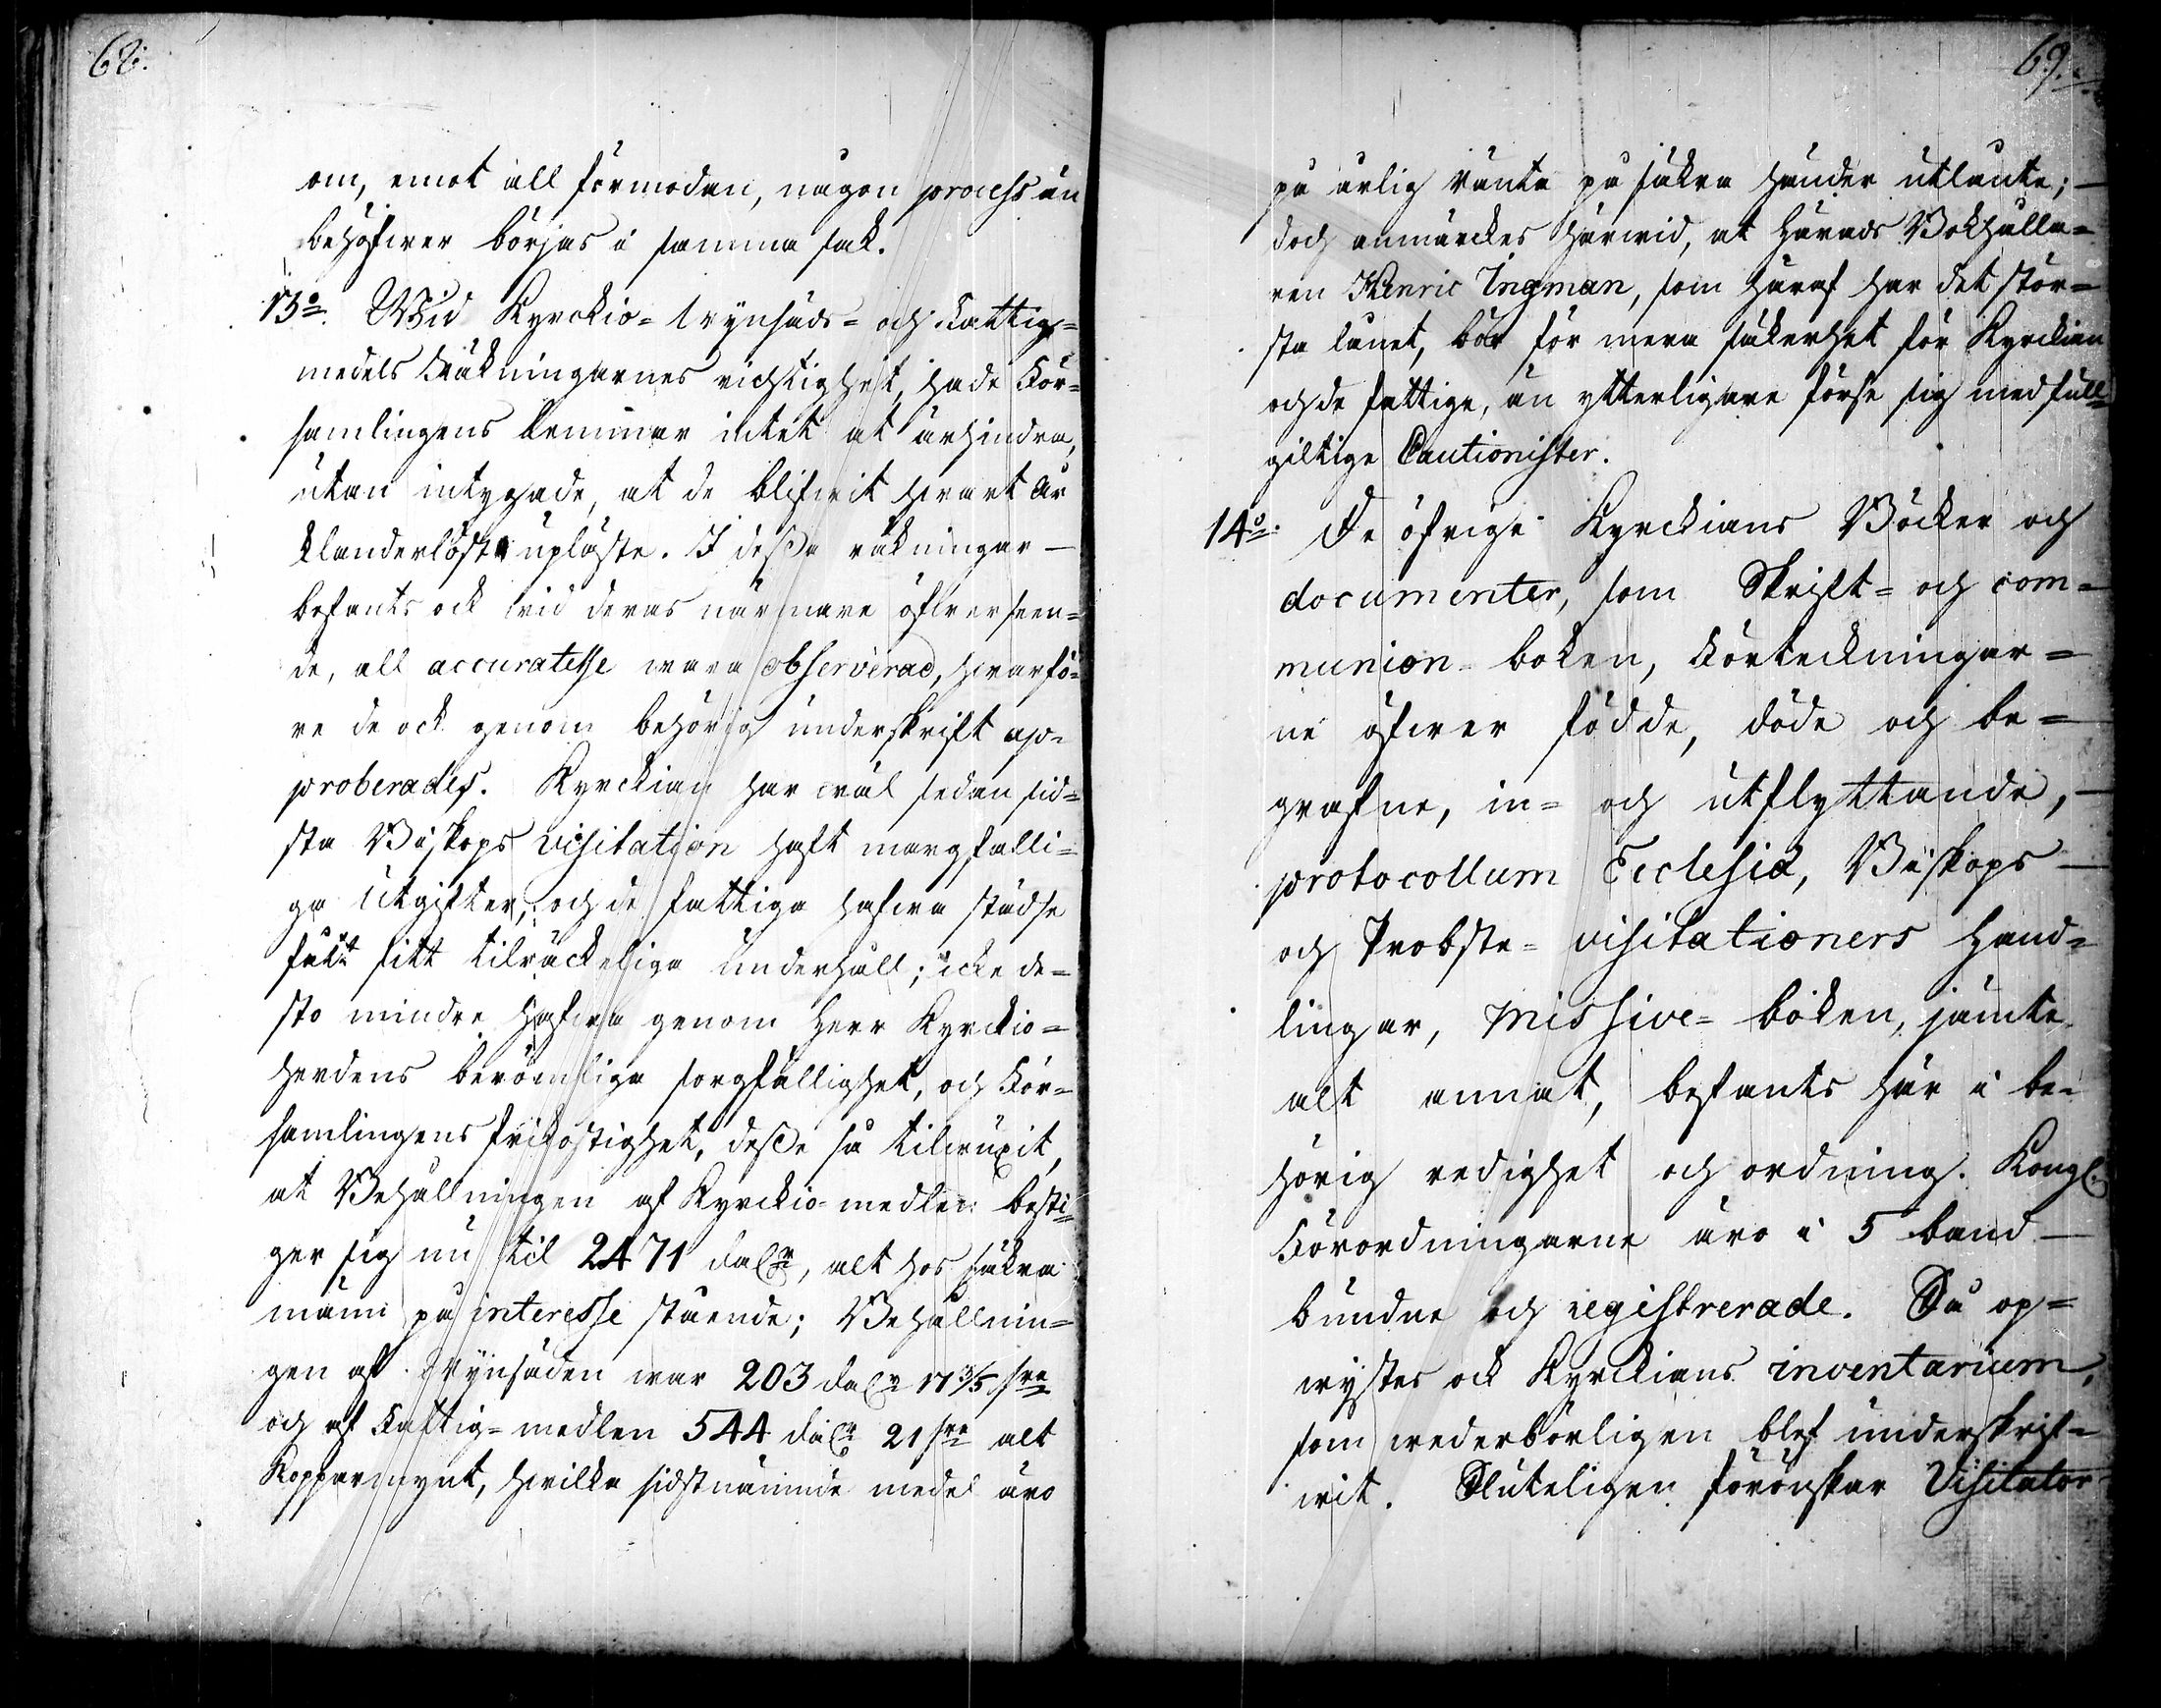 68.
om, emot all förmodan, någon process än
behöfwer börjas i samma sak.
13o. Wid Kyrckio- wynsäds- och Fattig-
medels Räkningarnes richtighet, hade För-
samlingens lemmar intet at ärhindra,
utan intygade, at de blifwit hwart År
klanderlöst upläste. I deße räkningar -
befants ock wid deras närmare öfwerseen-
de, all accuratesse wara observerad, hwarfö-
re de ock genom behörig underskrift ap-
proberades. Kyrckian har wäl sedan sid-
sta Biskops visitation haft mangfalli-
ga Utgifter, och de fattiga hafwa städse
fått sitt tilräckeliga Underhåll; icke de-
sto mindre hafwa genom Herr Kyrckio-
herdens berömliga sorgfällighet, och För-
samlingens frikostighet, deße så tilwuxit,
at Behållningen af Kyrckio-medlen besti-
ger sig nu til 2471 dalr, alt hos säkra
män på interesse stående; Behållnin-
gen af Wynsäden war 203 dalr 17 3/5 öre
och af Fattig-medlen 544 dalr 21 öre alt
Kopparmynt, hwilka sidstnämnde medel äro
69.
på årlig ränta på säkra händer utlänte; -
doch anmärckes härwid, at Härads Bokhålla-
ren Henric Ingman, som häraf har det stör-
sta lånet, bör för mera säkerhet för Kyrckian
och de fattige, än ytterligare förse sig med full-
giltige Cautionister.
14o. De öfrige Kyrckians Böcker och
documenter, som Skrift- och com-
munion-boken, Förteckningar-
ne öfwer födde, döde och be-
grafne, in- och utflyttande, -
protocollum Ecclesiæ, Biskops -
och Probste- visitationers Hand-
lingar, Missive-boken, jämte
alt annat, befants här i be-
hörig redighet och ordning. Kongl.
Förordningarne äro i 5 band -
bundne och registrerade. Så op-
wystes ock Kyrckians inventarium,
som wederbörligen blef underskrif-
wit. Sluteligen förönskar Visitator